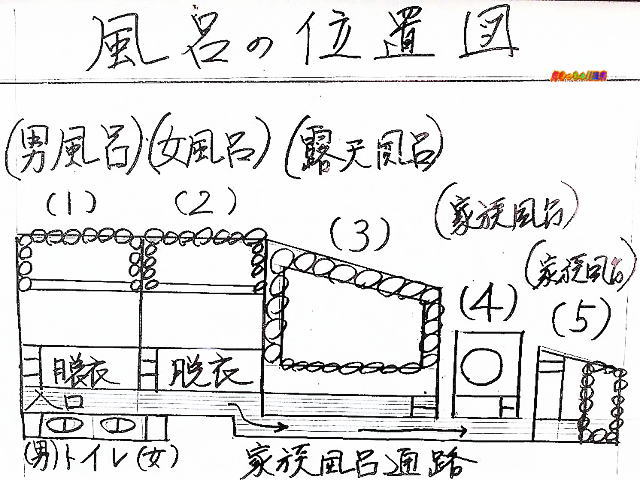 風呂の位置図
(男風呂)(女風呂)(露天風呂)
(1) (2) (3)
(家族風呂)
(家族風呂)
(4) (5)
脱衣 脱衣
入口
(男)トイレ(女)
家族風呂通路